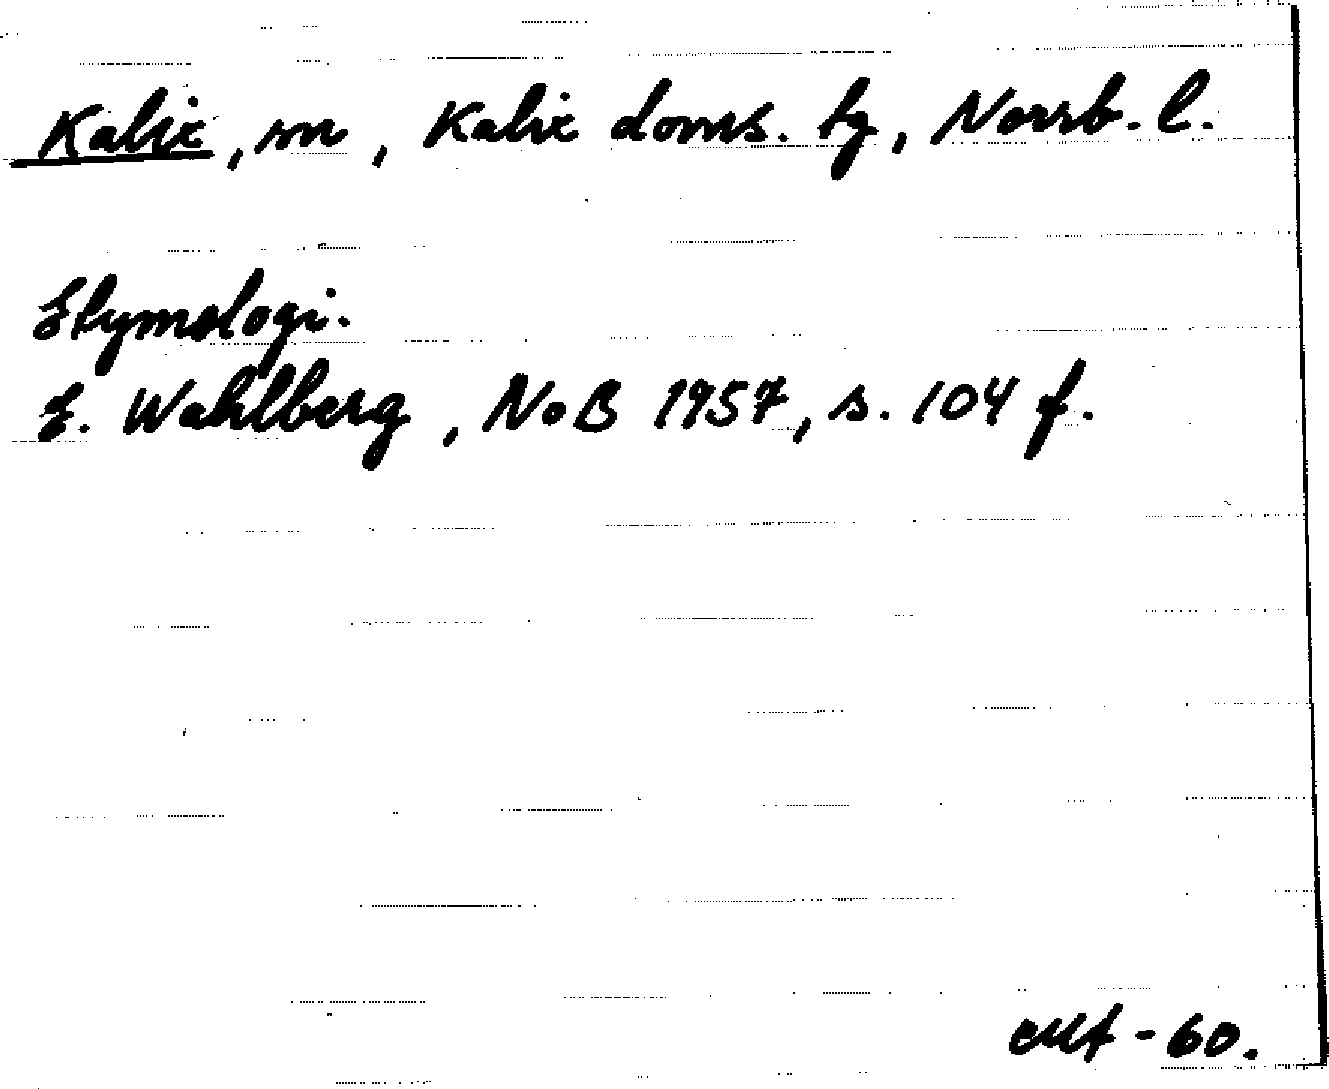 Kalix, sn, Kalix doms. tg, Norrb. l.
Etymologi.
E. Wahlberg, NoB 1957, s. 104 f.
-60.